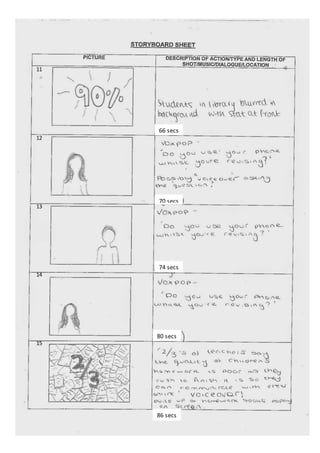 STORYBOARD SHEET
PICTURE
DESCRIPTION OF ACTION/TYPE AND LENGTH OF
SHOT/MUSIC/DIALOGUE/LOCATION
11
90%
Students in library blurred in
background with stat at front
66 secs
12
VOXPOP -
'Do you use your phone
whilst you're revising?'
Possibly "voiceover" asking
the question.
70 secs
13
VOXPOP -
'Do you use your phone
whilst you're revising?'
74 secs
14
VOXPOP -
'Do you use your phone
whilst you're revising?'
80 secs
15
2/3
'2/3's of teachers say
the quality of children's
homework is poor as they
rush to finish it so they
can communicate with
voiceover)
build up of homework
on screen.
86 secs